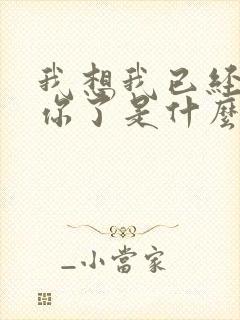 我想我已经
你了是什麼
_小當家